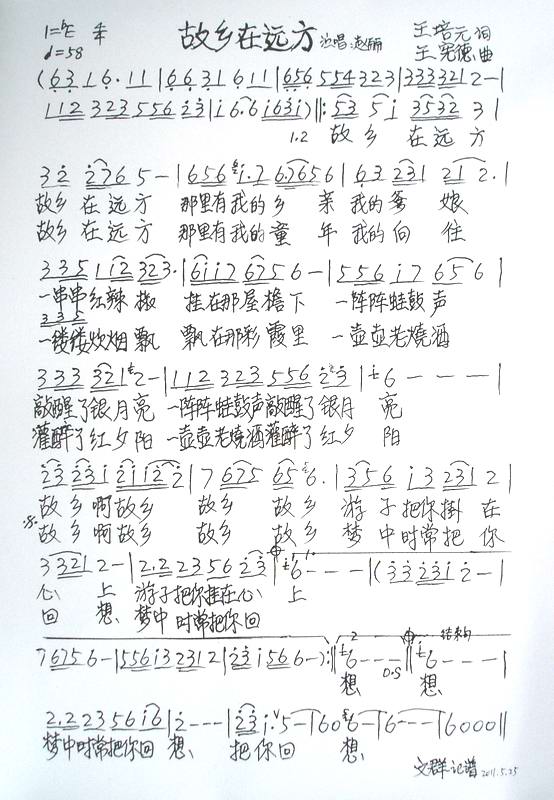 1=ᵇE 4/4 故乡在远方 演唱:赵丽 王培元 词
♩=58 王宪德 曲
(6316·11|6631611|656554323|3333212-|
11232355623|i6·6i63i)‖:535i35323|
1.2 故乡 在远方
322765-|656i·76.7656|63231212·|
故乡 在远方 那里有我的乡 亲 我的爹 娘
故乡 在远方 那里有我的童 年 我的向 往
3351i2323·|6ii76756-|556i7656|
一串串红辣椒 挂在那屋檐下 一阵阵蛙鼓声
335
一缕缕炊烟飘 飘在那彩霞里 一壶壶老烧酒
3333212-|11232355623|i6---|
敲醒了银月亮 一阵阵蛙鼓声敲醒了银月 亮
灌醉了红夕阳 一壶壶老烧酒灌醉了红夕 阳
2323121i22|7675656·|356i32312|
故乡啊故乡 故乡 故乡 游子把你掛在
故乡啊故乡 故乡 故乡 梦中时常把你
33212-|2.2235623|i6---|(332312-|
心 上 游子把你挂在心 上
回 想 梦中时常把你回
76756-|556i32312|23i566-):‖i6---‖i6---|
2 结构
想 D.S 想
2.223556i6|2---|23i·5-|606-|6---|6000‖
梦中时常把你回 想 把你回 想
文群记谱 2011.5.25